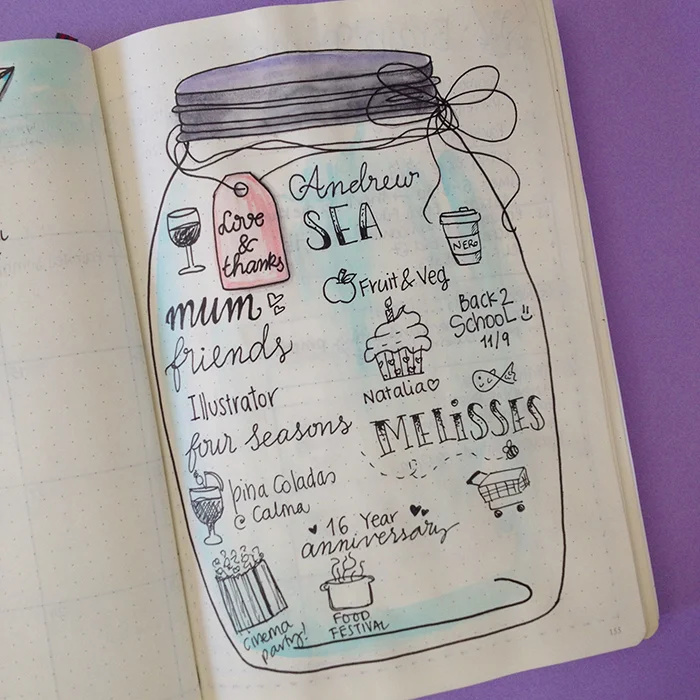 Love
&
thanks
Andrew
SEA
NERO
mum
Fruit & Veg
BACK 2
SCHOOL
11/9
friends
Natalia
Illustrator
MELiSSES
four seasons
pina Coladas
@ Calma
16 Year
anniversary
cinema
party!
FOOD
FESTIVAL